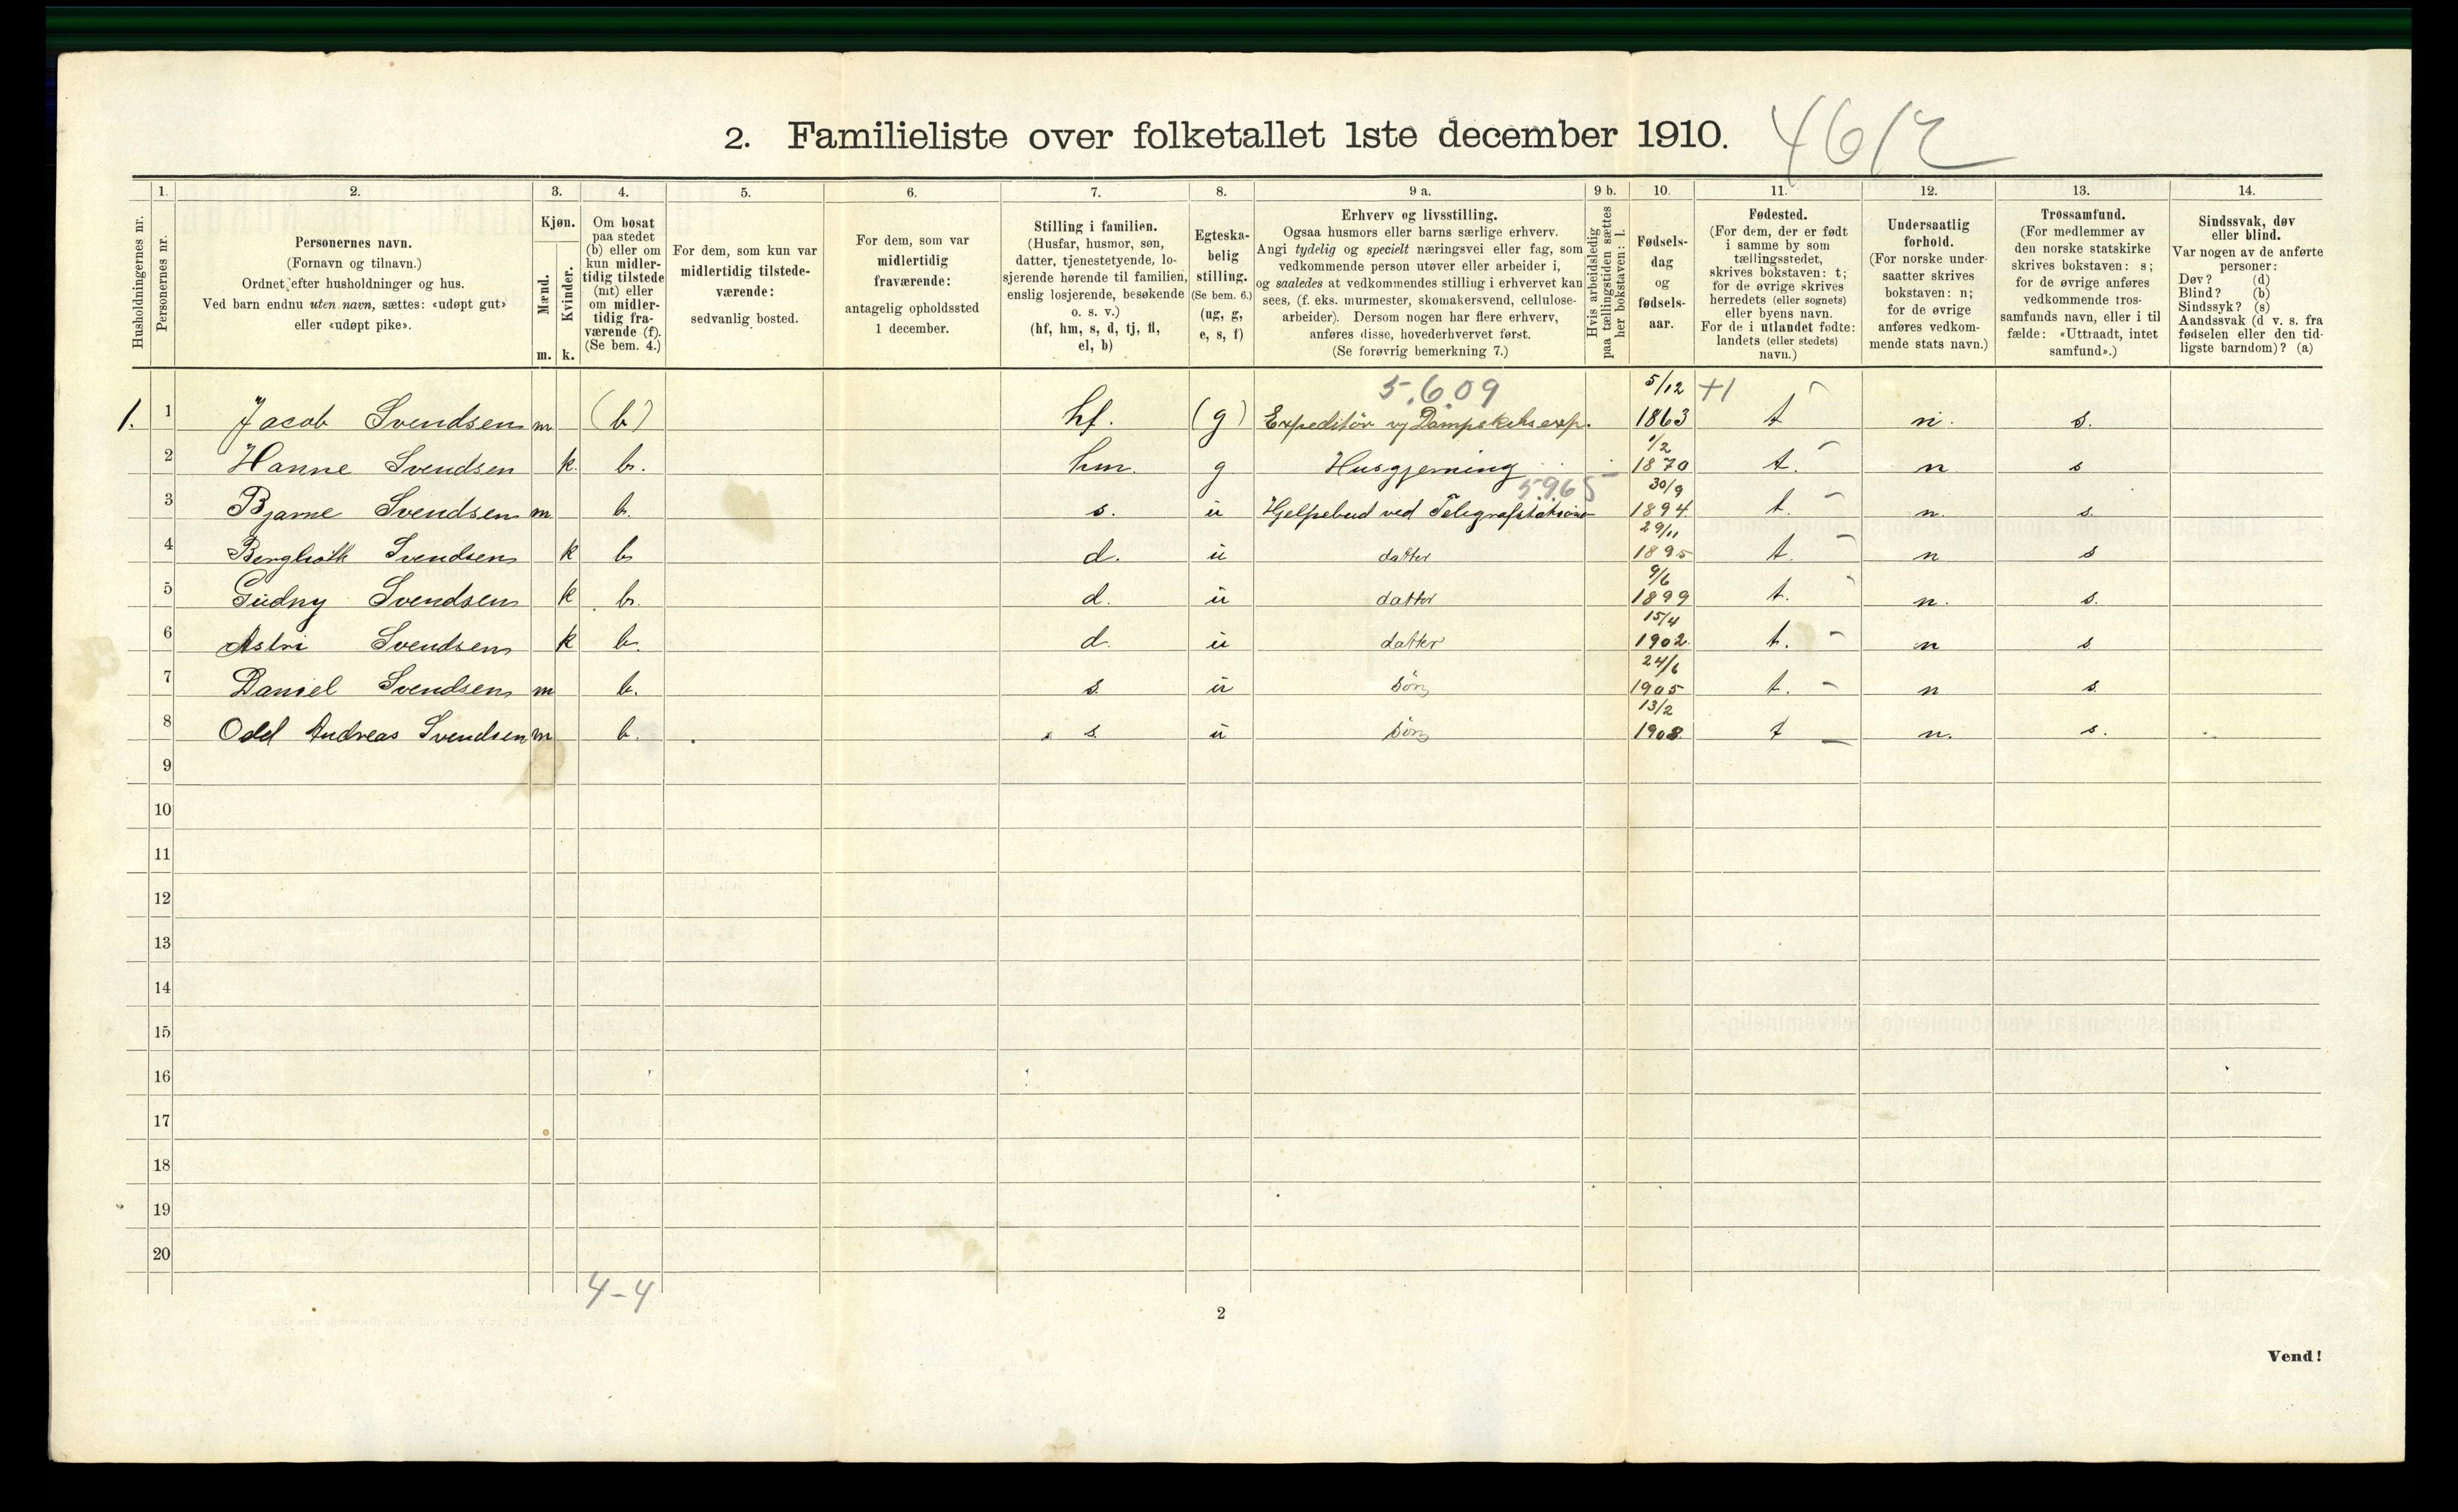 2. Familieliste over folketallet 1ste december 1910.
4612
Husholdningernes nr.
1. Personernes nr.
2. Personernes navn.
(Fornavn og tilnavn.)
Ordnet efter husholdninger og hus.
Ved barn endnu uten navn, sættes: «udøpt gut»
eller «udøpt pike».
3. Kjøn.
Mænd. m.
Kvinder. k.
4. Om bosat
paa stedet
(b) eller om
kun midler-
tidig tilstede
(mt) eller
om midler-
tidig fra-
værende (f).
(Se bem. 4.)
5. For dem, som kun var
midlertidig tilstede-
værende:
sedvanlig bosted.
6. For dem, som var
midlertidig
fraværende:
antagelig opholdssted
1 december.
7. Stilling i familien.
(Husfar, husmor, søn,
datter, tjenestetyende, lo-
sjerende hørende til familien,
enslig losjerende, besøkende
o. s. v.)
(hf, hm, s, d, tj, fl,
el, b)
8. Egteska-
belig
stilling.
(Se bem. 6.)
(ug, g,
e, s, f)
9 a. Erhverv og livsstilling.
Ogsaa husmors eller barns særlige erhverv.
Angi tydelig og specielt næringsvei eller fag, som
vedkommende person utøver eller arbeider i,
og saaledes at vedkommendes stilling i erhvervet kan
sees, (f. eks. murmester, skomakersvend, cellulose-
arbeider). Dersom nogen har flere erhverv,
anføres disse, hovederhvervet først.
(Se forøvrig bemerkning 7.)
9 b. Hvis arbeidsledig
paa tællingstiden sættes
her bokstaven: l.
10. Fødsels-
dag
og
fødsels-
aar.
11. Fødested.
(For dem, der er født
i samme by som
tællingsstedet,
skrives bokstaven: t;
for de øvrige skrives
herredets (eller sognets)
eller byens navn.
For de i utlandet fødte:
landets (eller stedets)
navn.)
12. Undersaatlig
forhold.
(For norske under-
saatter skrives
bokstaven: n;
for de øvrige
anføres vedkom-
mende stats navn.)
13. Trossamfund.
(For medlemmer av
den norske statskirke
skrives bokstaven: s;
for de øvrige anføres
vedkommende tros-
samfunds navn, eller i til
fælde: «Uttraadt, intet
samfund».)
14. Sindssvak, døv
eller blind.
Var nogen av de anførte
personer:
Døv? (d)
Blind? (b)
Sindssyk? (s)
Aandssvak (d v. s. fra
fødselen eller den tid-
ligste barndom)? (a)
5.6.09 5/12 +1
1. 1 Jacob Svendsen m (b) hf. (g) Expeditör v/ Dampskibsexp. 1863 t n. s.
1/2
2 Hanne Svendsen k. b. hm. g Husgjerning 1870 t. n s
5965 30/9
3 Bjarne Svendsen m b. s. u Hjelpebud ved Telegrafstationen 1894 t. n. s.
29/11
4 Berglioth Svendsen k b d. u datter 1895 t. n s
9/6
5 Gudny Svendsen k b. d. u datter 1899 t. n. s.
15/4
6 Astri Svendsen k b. d. u datter 1902 t. n s.
24/6
7 Daniel Svendsen m b. s. u sön 1905 t. n s.
13/2
8 Odd Andreas Svendsen m b. s. u sön 1908 t n. s.
9
10
11
12
13
14
15
16
17
18
19
20
4-4
2
Vend!